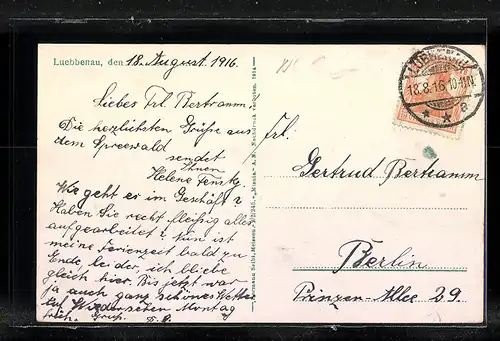 Luebbenau, den 18. August 1916.
Liebes Frl. Bertramm.
Die herzlichsten Grüße aus
dem Spreewald
sendet
Ihnen
Helene
Wie geht es im Geschäft?
Haben Sie recht fleißig alles
aufgearbeitet? Nun ist
meine Ferienzeit bald zu
Ende leider, ich bliebe
gleich hier. Bis jetzt war
ja auch ganz schönes Wetter
Auf Wiedersehen Montag
früh. Gruß.
LÜBBENAU
18.8.16. 10-11V.
* * a
Frl.
Gertrud Bertramm
Berlin
Prinzen-Allee 29